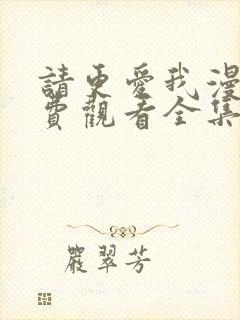 請更愛我漫
費觀看全集
嚴翠芳